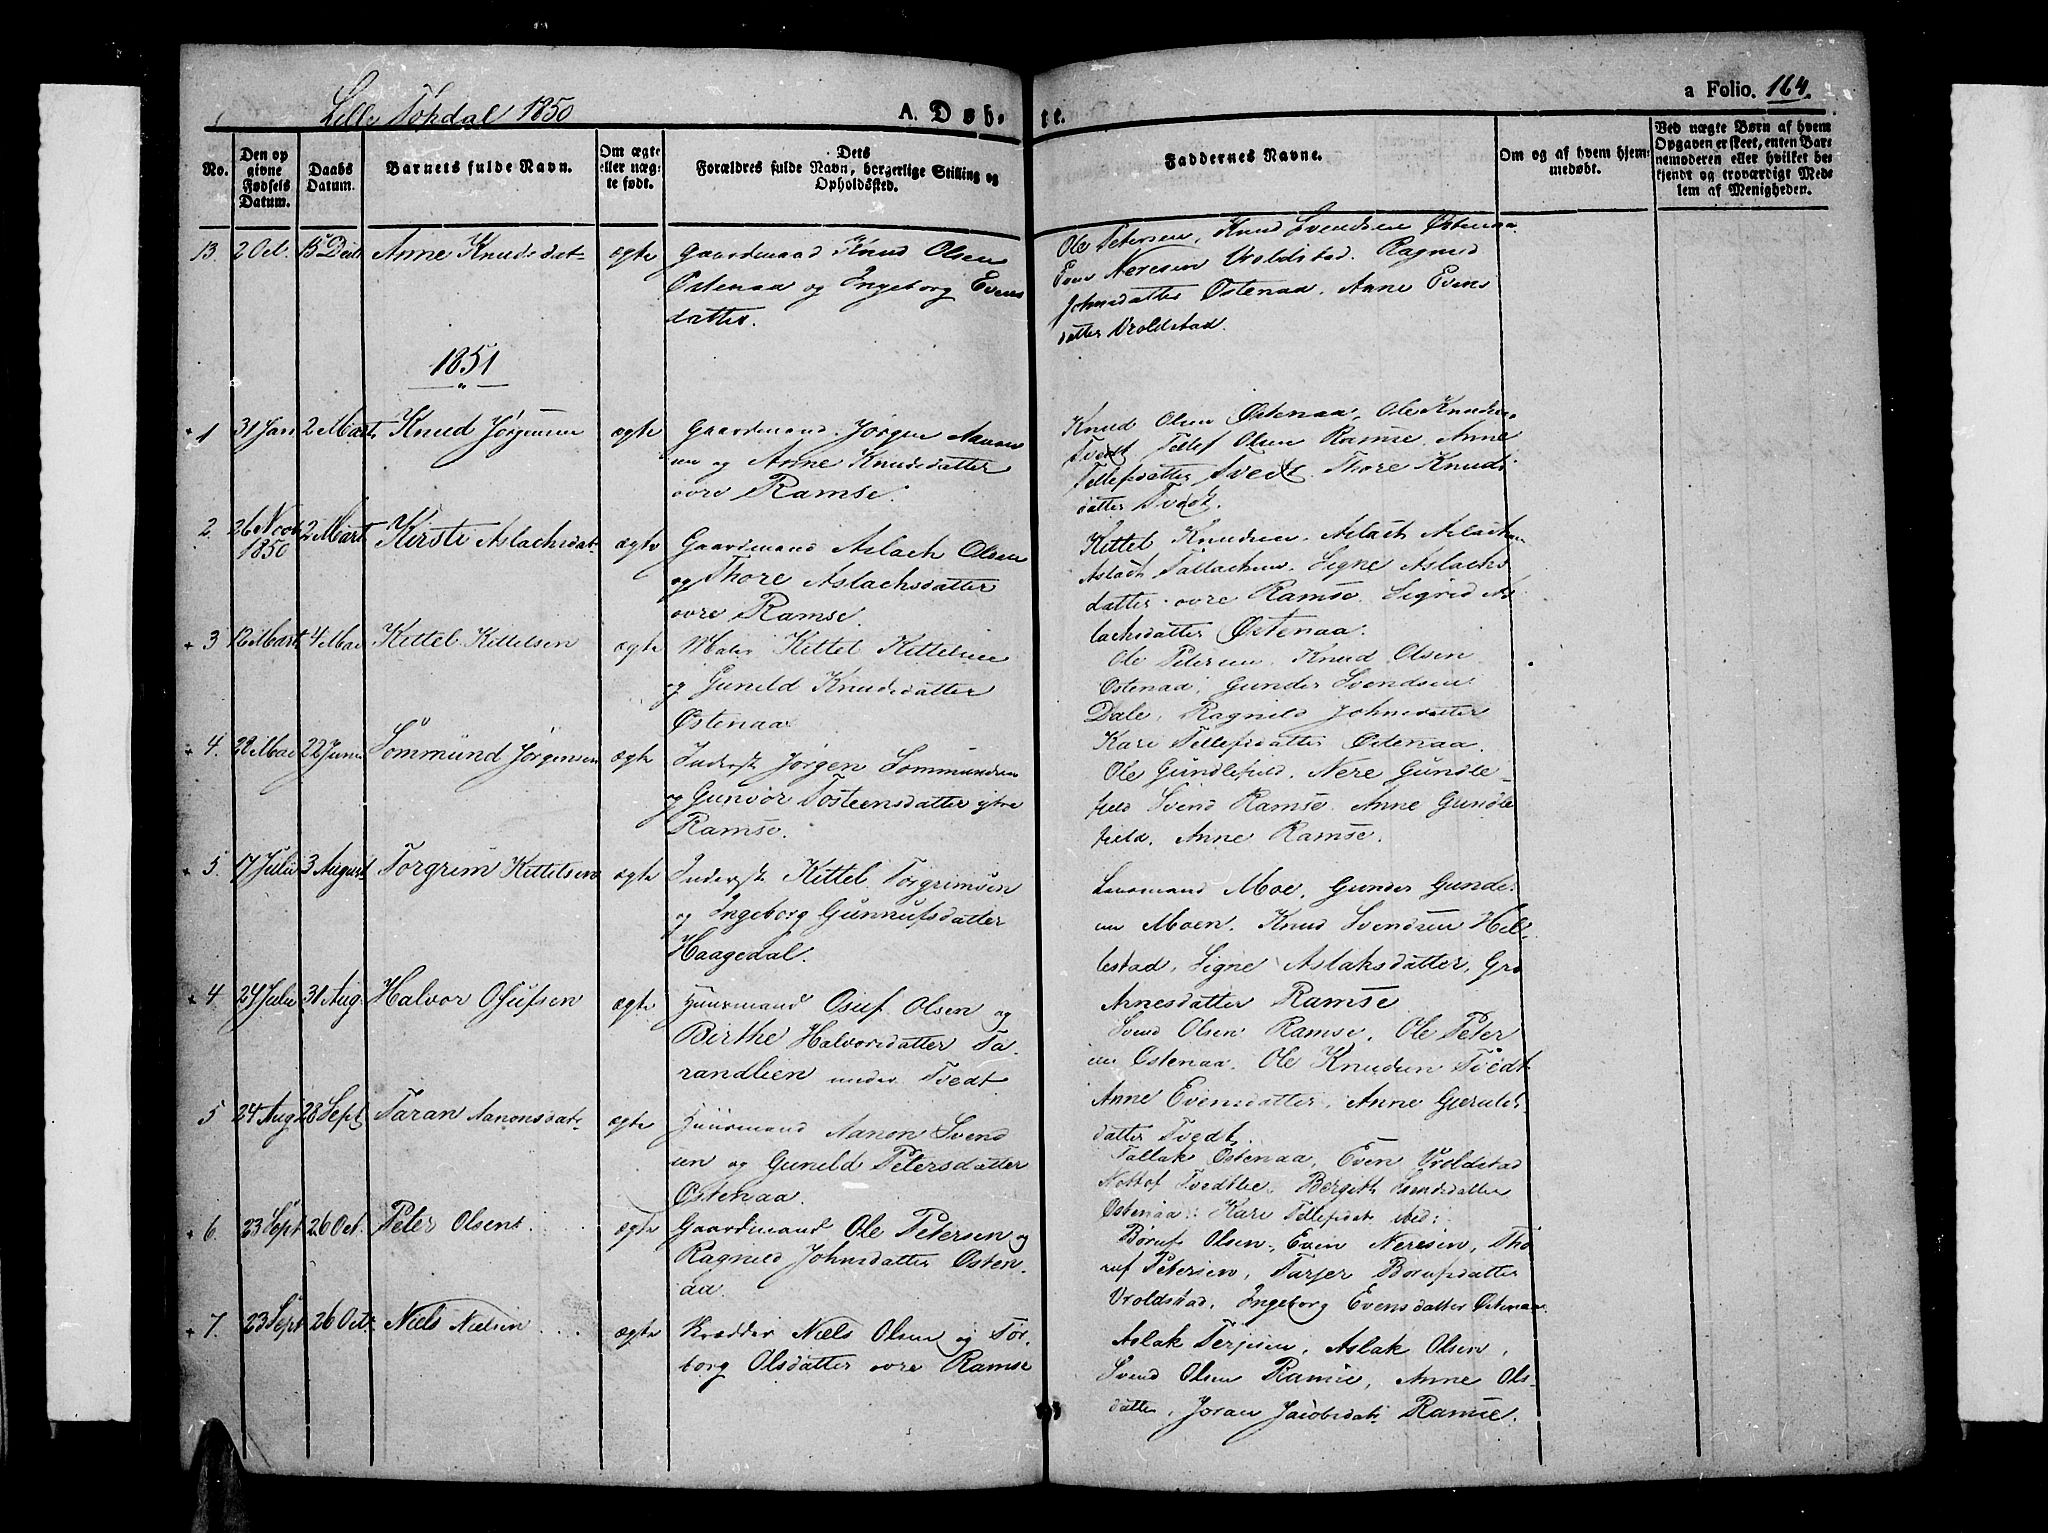 Lille Tovdal 1850
A. Døbte.
a Folio. 164.
No.
Den opgivne Fødsels Datum.
Daabs Datum.
Barnets fulde Navn.
Om ægte eller uægte født.
Dets Forældres fulde Navn, borgerlige Stilling og Opholdssted.
Faddernes Navne.
Om og af hvem hjemmedøbt.
Ved uægte Børn af hvem Opgaven er skeet, enten Barnemoderen eller hvilket bekjendt og troværdigt Medlem af Menigheden.
13. 2 Oct. Anne Knudsdat- ægte Gaardmand Knud Olsen
Østenaa og Ingeborg Evens
datter.
Ole Petersen, Knud Svendsen Østenaa
Even Neresen Vroldstad. Ragnild
Johnsdatter Østenaa. Anne Evens
datter Vroldstad.
1851
1 31 Jan 2 Marts Knud Jørgensen ægte Gaardmand Jørgen Aanon
sen og Anne Knudsdatter
øvre Ramse.
Knud Olsen Østenaa, Ole Knudsen
Tvedt Tellef Olsen Ramse. Anne
Tellefsdatter Tvedt. Thore Knuds
datter Tvedt.
2. 26 Novb 1850 2 Mart Kirsti Aslachsdat- ægte Gaardmand Aslach Olsen
og Thore Aslachsdatter
øvre Ramse.
Kittel Knudsen. Aslach Aslachsen
Aslach Tallachsen. Signe Aslachs
datter øvre Ramse. Sigrid As
lachsdatter Østenaa.
3 12 Mart 4 Mai Kittel Kittelsen ægte Maler Kittel Kittelsen
og Gunild Knudsdatter
Østenaa
Ole Petersen. Knud Olsen
Østenaa. Gunder Svendsen
Dale, Ragnild Johnsdatter
Kari Tellefsdatter Østenaa.
4. 22 Mai 22 Juni Sommund Jørgensen ægte Inderst Jørgen Sommundsen
og Gunvor Tosteensdatter ytre
Ramse.
Ole Gundlefield. Nere Gundle-
field Svend Ramse. Anne Gundle
field. Anne Ramse.
5. 17 Julii 3 August Torgrim Kittelsen ægte Inderst Kittel Torgrimsen
og Ingeborg Gunnufsdatter
Haagedal.
Lensmand Moe, Gunder Gunder
sen Moen. Knud Svendsen Hil-
lestad, Signe Aslaksdatter, Gro
Arnesdatter Ramse
4 24 Julii 31 Aug. Halvor Osufsen ægte Huusmand Osuf Olsen og
Birthe Halvorsdatter Ta-
randlien under Tvedt
Svend Olsen Ramse, Ole Peter
sen Østenaa. Ole Knudsen Tvedt
Anne Evensdatter. Anne Gjerulds-
datter Tvedt.
5 24 Aug 28 Sept Taran Aanonsdat- ægte Huusmand Aanon Svend
sen og Gunild Petersdatter
Østenaa.
Tallak Østenaa, Even Vroldstad
Tvedtlie. Bergith Svendsdatter
Østenaa: Kari Tellefsdat ibid:
6. 23 Sept 26 Oct. Peter Olsen ægte Gaardmand Ole Petersen og
Ragnild Johnsdatter Østen-
aa.
Børuf Olsen, Even Neresen, Tho
ruf Petersen, Tarjer Børufsdatter
Vroldstad. Ingeborg Evensdatter Østenaa
7. 23 Sept 26 Octr Niels Nielsen ægte Skrædder Niels Olsen og Tor-
borg Olsdatter øvre Ramse
Aslak Terjesen, Aslak Olsen,
Svend Olsen Ramse, Anne Ols-
datter, Joran Jacobsdat: Ramse.